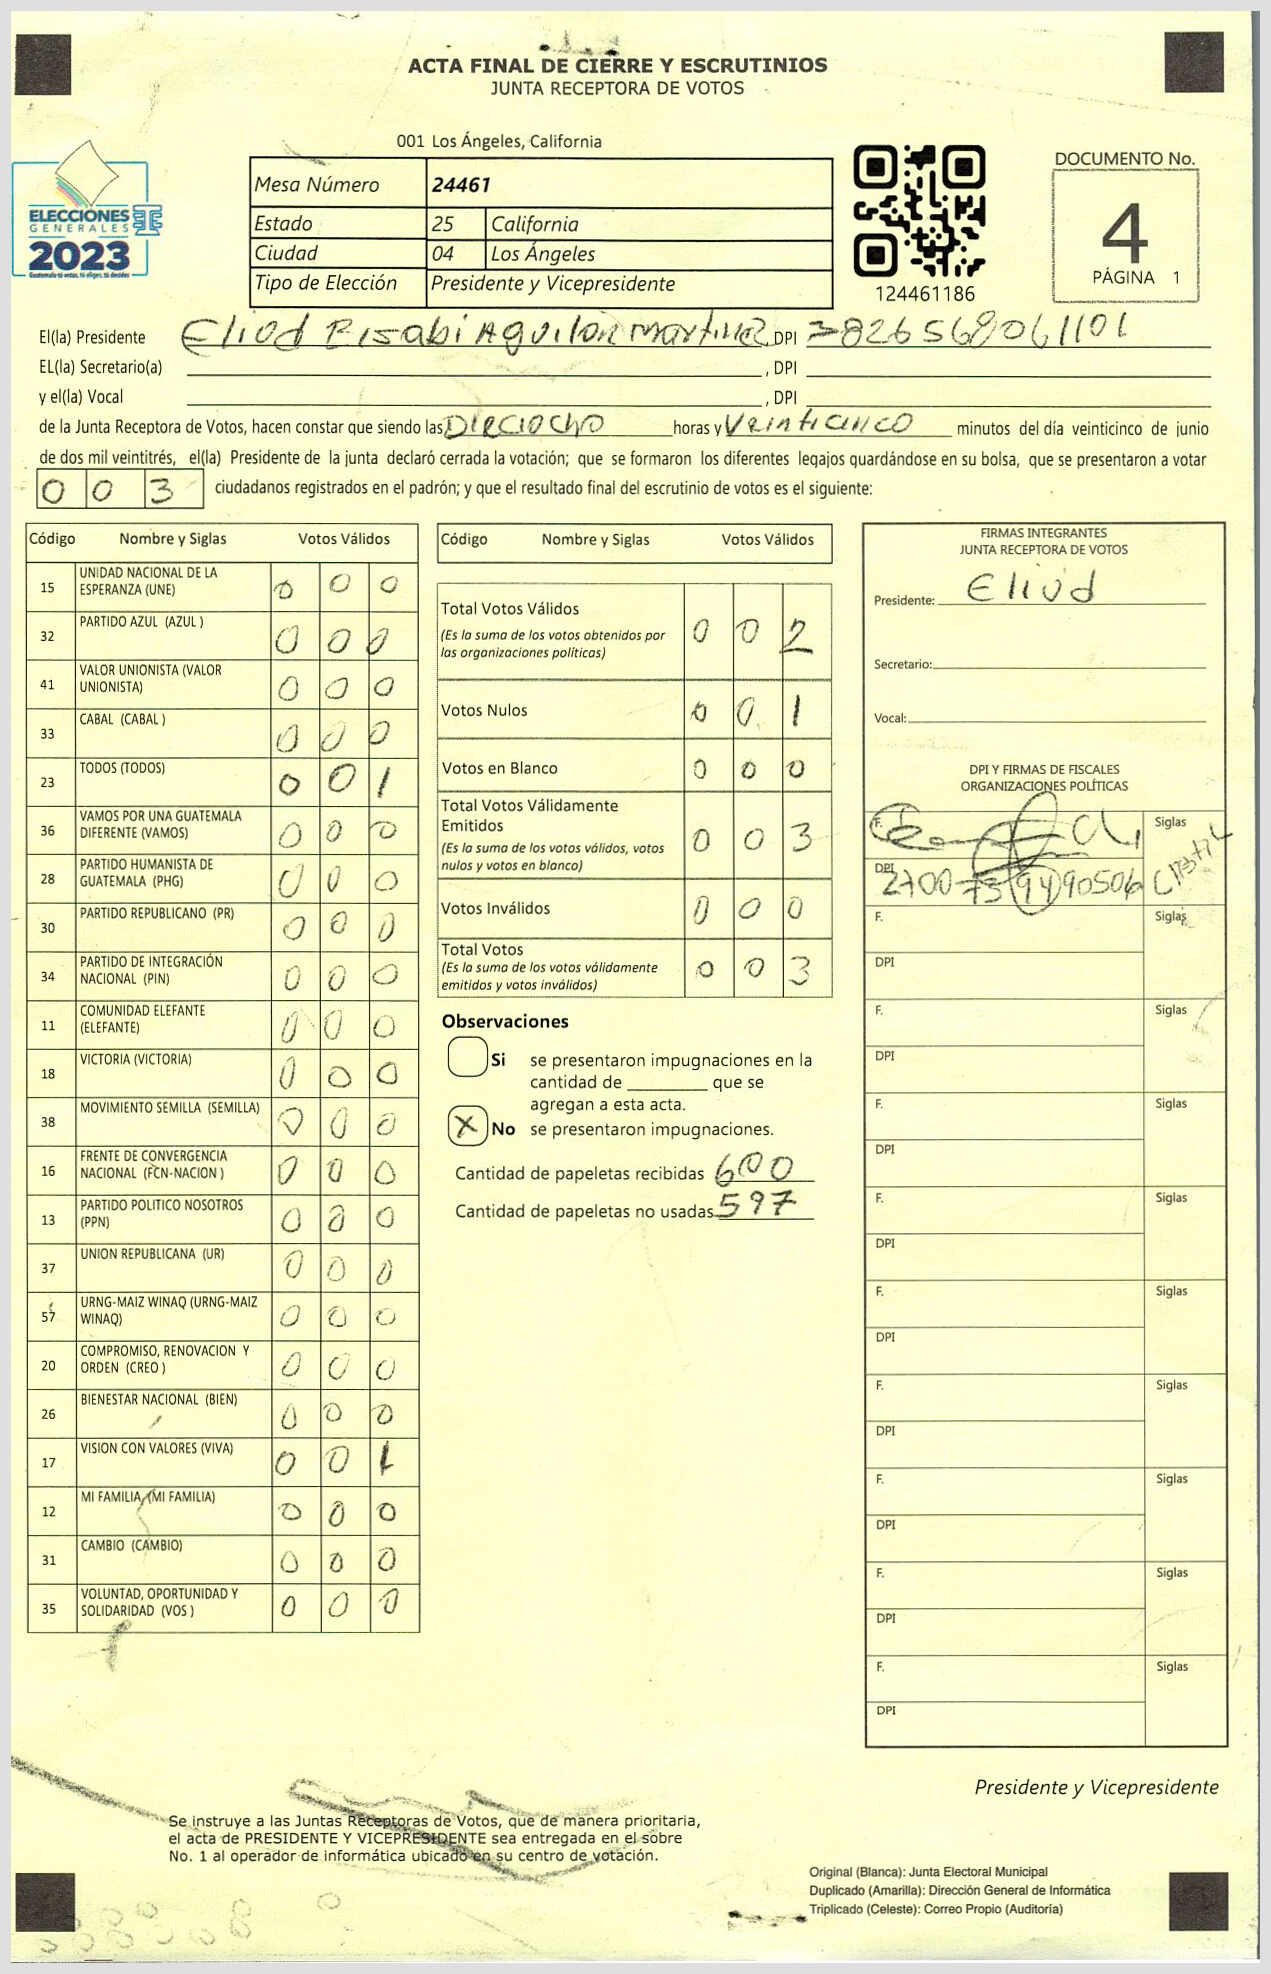 ACTA FINAL DE CIERRE Y ESCRUTINIOS
JUNTA RECEPTORA DE VOTOS
001 Los Ángeles, California
ELECCIONES
GENERALES
2023
Guatemala tú votas, tú eliges, tú decides
Mesa Número 24461
Estado 25 California
Ciudad 04 Los Ángeles
Tipo de Elección Presidente y Vicepresidente
124461186
DOCUMENTO No.
4
PÁGINA 1
El(la) Presidente Eliud Aguilar Martinez, DPI
EL(la) Secretario(a) , DPI
y el(la) Vocal , DPI
de la Junta Receptora de Votos, hacen constar que siendo las Dieciocho horas y Veinticinco minutos del día veinticinco de junio
de dos mil veintitrés, el(la) Presidente de la junta declaró cerrada la votación; que se formaron los diferentes legajos guardándose en su bolsa, que se presentaron a votar
0 0 3 ciudadanos registrados en el padrón; y que el resultado final del escrutinio de votos es el siguiente:
Código Nombre y Siglas Votos Válidos
15 UNIDAD NACIONAL DE LA ESPERANZA (UNE) 0 0 0
32 PARTIDO AZUL (AZUL ) 0 0 0
41 VALOR UNIONISTA (VALOR UNIONISTA) 0 0 0
33 CABAL (CABAL ) 0 0 0
23 TODOS (TODOS) 0 0 1
36 VAMOS POR UNA GUATEMALA DIFERENTE (VAMOS) 0 0 0
28 PARTIDO HUMANISTA DE GUATEMALA (PHG) 0 0 0
30 PARTIDO REPUBLICANO (PR) 0 0 0
34 PARTIDO DE INTEGRACIÓN NACIONAL (PIN) 0 0 0
11 COMUNIDAD ELEFANTE (ELEFANTE) 0 0 0
18 VICTORIA (VICTORIA) 0 0 0
38 MOVIMIENTO SEMILLA (SEMILLA) 0 0 0
16 FRENTE DE CONVERGENCIA NACIONAL (FCN-NACION ) 0 0 0
13 PARTIDO POLITICO NOSOTROS (PPN) 0 0 0
37 UNION REPUBLICANA (UR) 0 0 0
57 URNG-MAIZ WINAQ (URNG-MAIZ WINAQ) 0 0 0
20 COMPROMISO, RENOVACION Y ORDEN (CREO ) 0 0 0
26 BIENESTAR NACIONAL (BIEN) 0 0 0
17 VISION CON VALORES (VIVA) 0 0 1
12 MI FAMILIA (MI FAMILIA) 0 0 0
31 CAMBIO (CAMBIO) 0 0 0
35 VOLUNTAD, OPORTUNIDAD Y SOLIDARIDAD (VOS ) 0 0 0
Código Nombre y Siglas Votos Válidos
Total Votos Válidos 0 0 2
(Es la suma de los votos obtenidos por
las organizaciones políticas)
Votos Nulos 0 0 1
Votos en Blanco 0 0 0
Total Votos Válidamente
Emitidos 0 0 3
(Es la suma de los votos válidos, votos
nulos y votos en blanco)
Votos Inválidos 0 0 0
Total Votos 0 0 3
(Es la suma de los votos válidamente
emitidos y votos inválidos)
Observaciones
Si se presentaron impugnaciones en la
cantidad de ________ que se
agregan a esta acta.
X No se presentaron impugnaciones.
Cantidad de papeletas recibidas 600
Cantidad de papeletas no usadas 597
FIRMAS INTEGRANTES
JUNTA RECEPTORA DE VOTOS
Presidente: Eliud
Secretario:
Vocal:
DPI Y FIRMAS DE FISCALES
ORGANIZACIONES POLÍTICAS
F. Siglas
DPI
F. Siglas
DPI
F. Siglas
DPI
F. Siglas
DPI
F. Siglas
DPI
F. Siglas
DPI
F. Siglas
DPI
F. Siglas
DPI
F. Siglas
DPI
F. Siglas
DPI
Presidente y Vicepresidente
Se instruye a las Juntas Receptoras de Votos, que de manera prioritaria,
el acta de PRESIDENTE Y VICEPRESIDENTE sea entregada en el sobre
No. 1 al operador de informática ubicado en su centro de votación.
Original (Blanca): Junta Electoral Municipal
Duplicado (Amarilla): Dirección General de Informática
Triplicado (Celeste): Correo Propio (Auditoría)